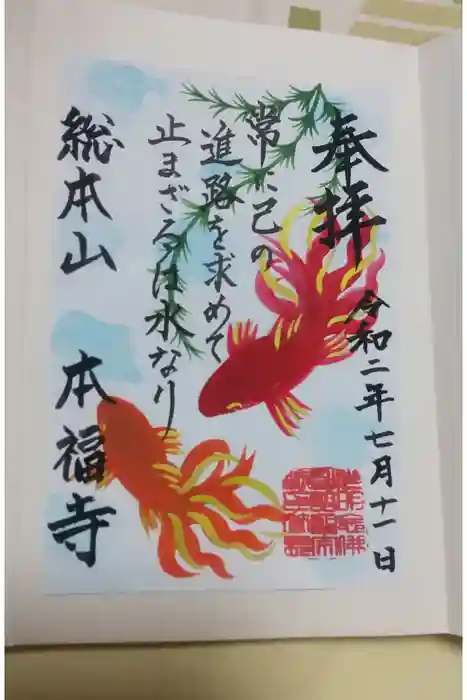 奉拝 令和二年七月十一日
常に己の
進路を求めて
止まざるは水なり
総本山 本福寺